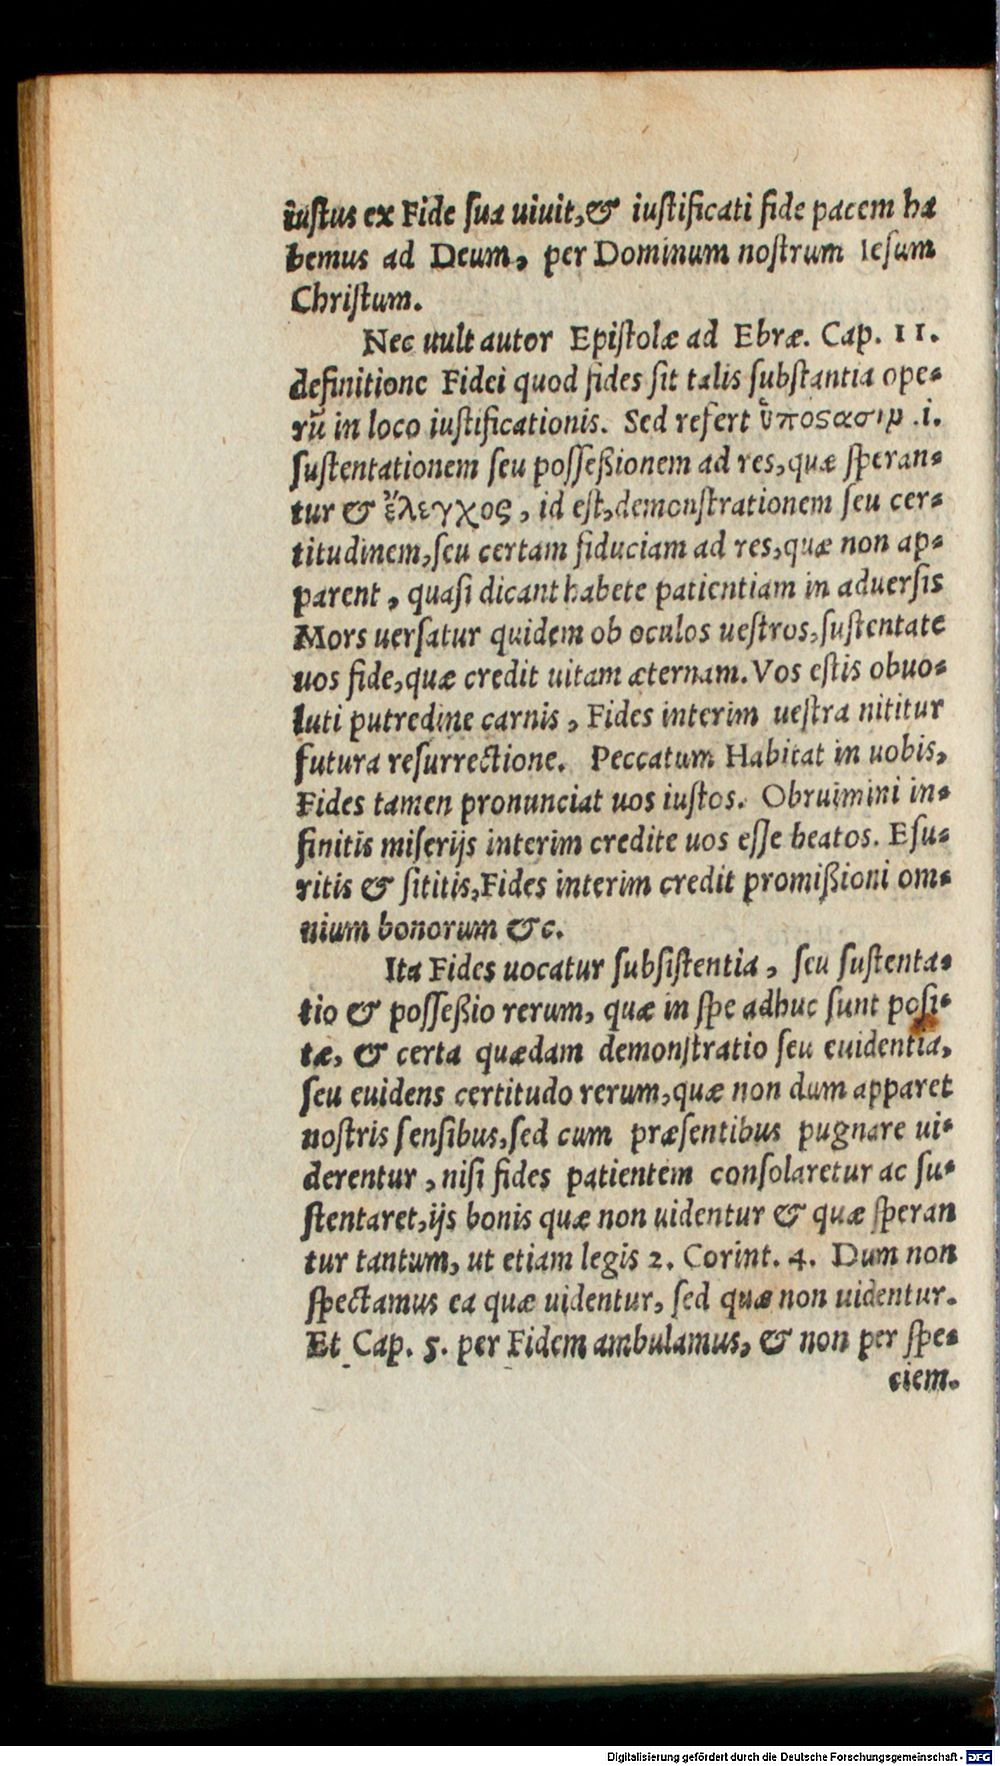 iustus ex Fide sua uiuit, & iustificati fide pacem ha
bemus ad Deum, per Dominum nostrum Iesum
Christum.
Nec uult autor Epistolæ ad Ebræ. Cap. 11.
definitione Fidei quod fides sit talis substantia ope-
rũ in loco iustificationis. Sed refert ὕποϛασιμ .i.
sustentationem seu posseßionem ad res, quæ speran-
tur & ἔλεγχος, id est, demonstrationem seu cer-
titudinem, seu certam fiduciam ad res, quæ non ap-
parent, quasi dicant habete patientiam in aduersis
Mors uersatur quidem ob oculos uestros, sustentate
uos fide, quæ credit uitam æternam. Vos estis obuo-
luti putredine carnis, Fides interim uestra nititur
futura resurrectione. Peccatum Habitat in uobis,
Fides tamen pronunciat uos iustos. Obruimini in-
finitis miserijs interim credite uos esse beatos. Esu-
ritis & sititis, Fides interim credit promißioni om-
nium bonorum &c.
Ita Fides uocatur subsistentia, seu sustenta-
tio & posseßio rerum, quæ in spe adhuc sunt posi-
tæ, & certa quædam demonstratio seu euidentia,
seu euidens certitudo rerum, quæ non dum apparet
nostris sensibus, sed cum præsentibus pugnare ui-
derentur, nisi fides patientem consolaretur ac su-
stentaret, ijs bonis quæ non uidentur & quæ speran
tur tantum, ut etiam legis 2. Corint. 4. Dum non
spectamus ea quæ uidentur, sed quæ non uidentur.
Et Cap. 5. per Fidem ambulamus, & non per spe-
ciem.
Digitalisierung gefördert durch die Deutsche Forschungsgemeinschaft - DFG